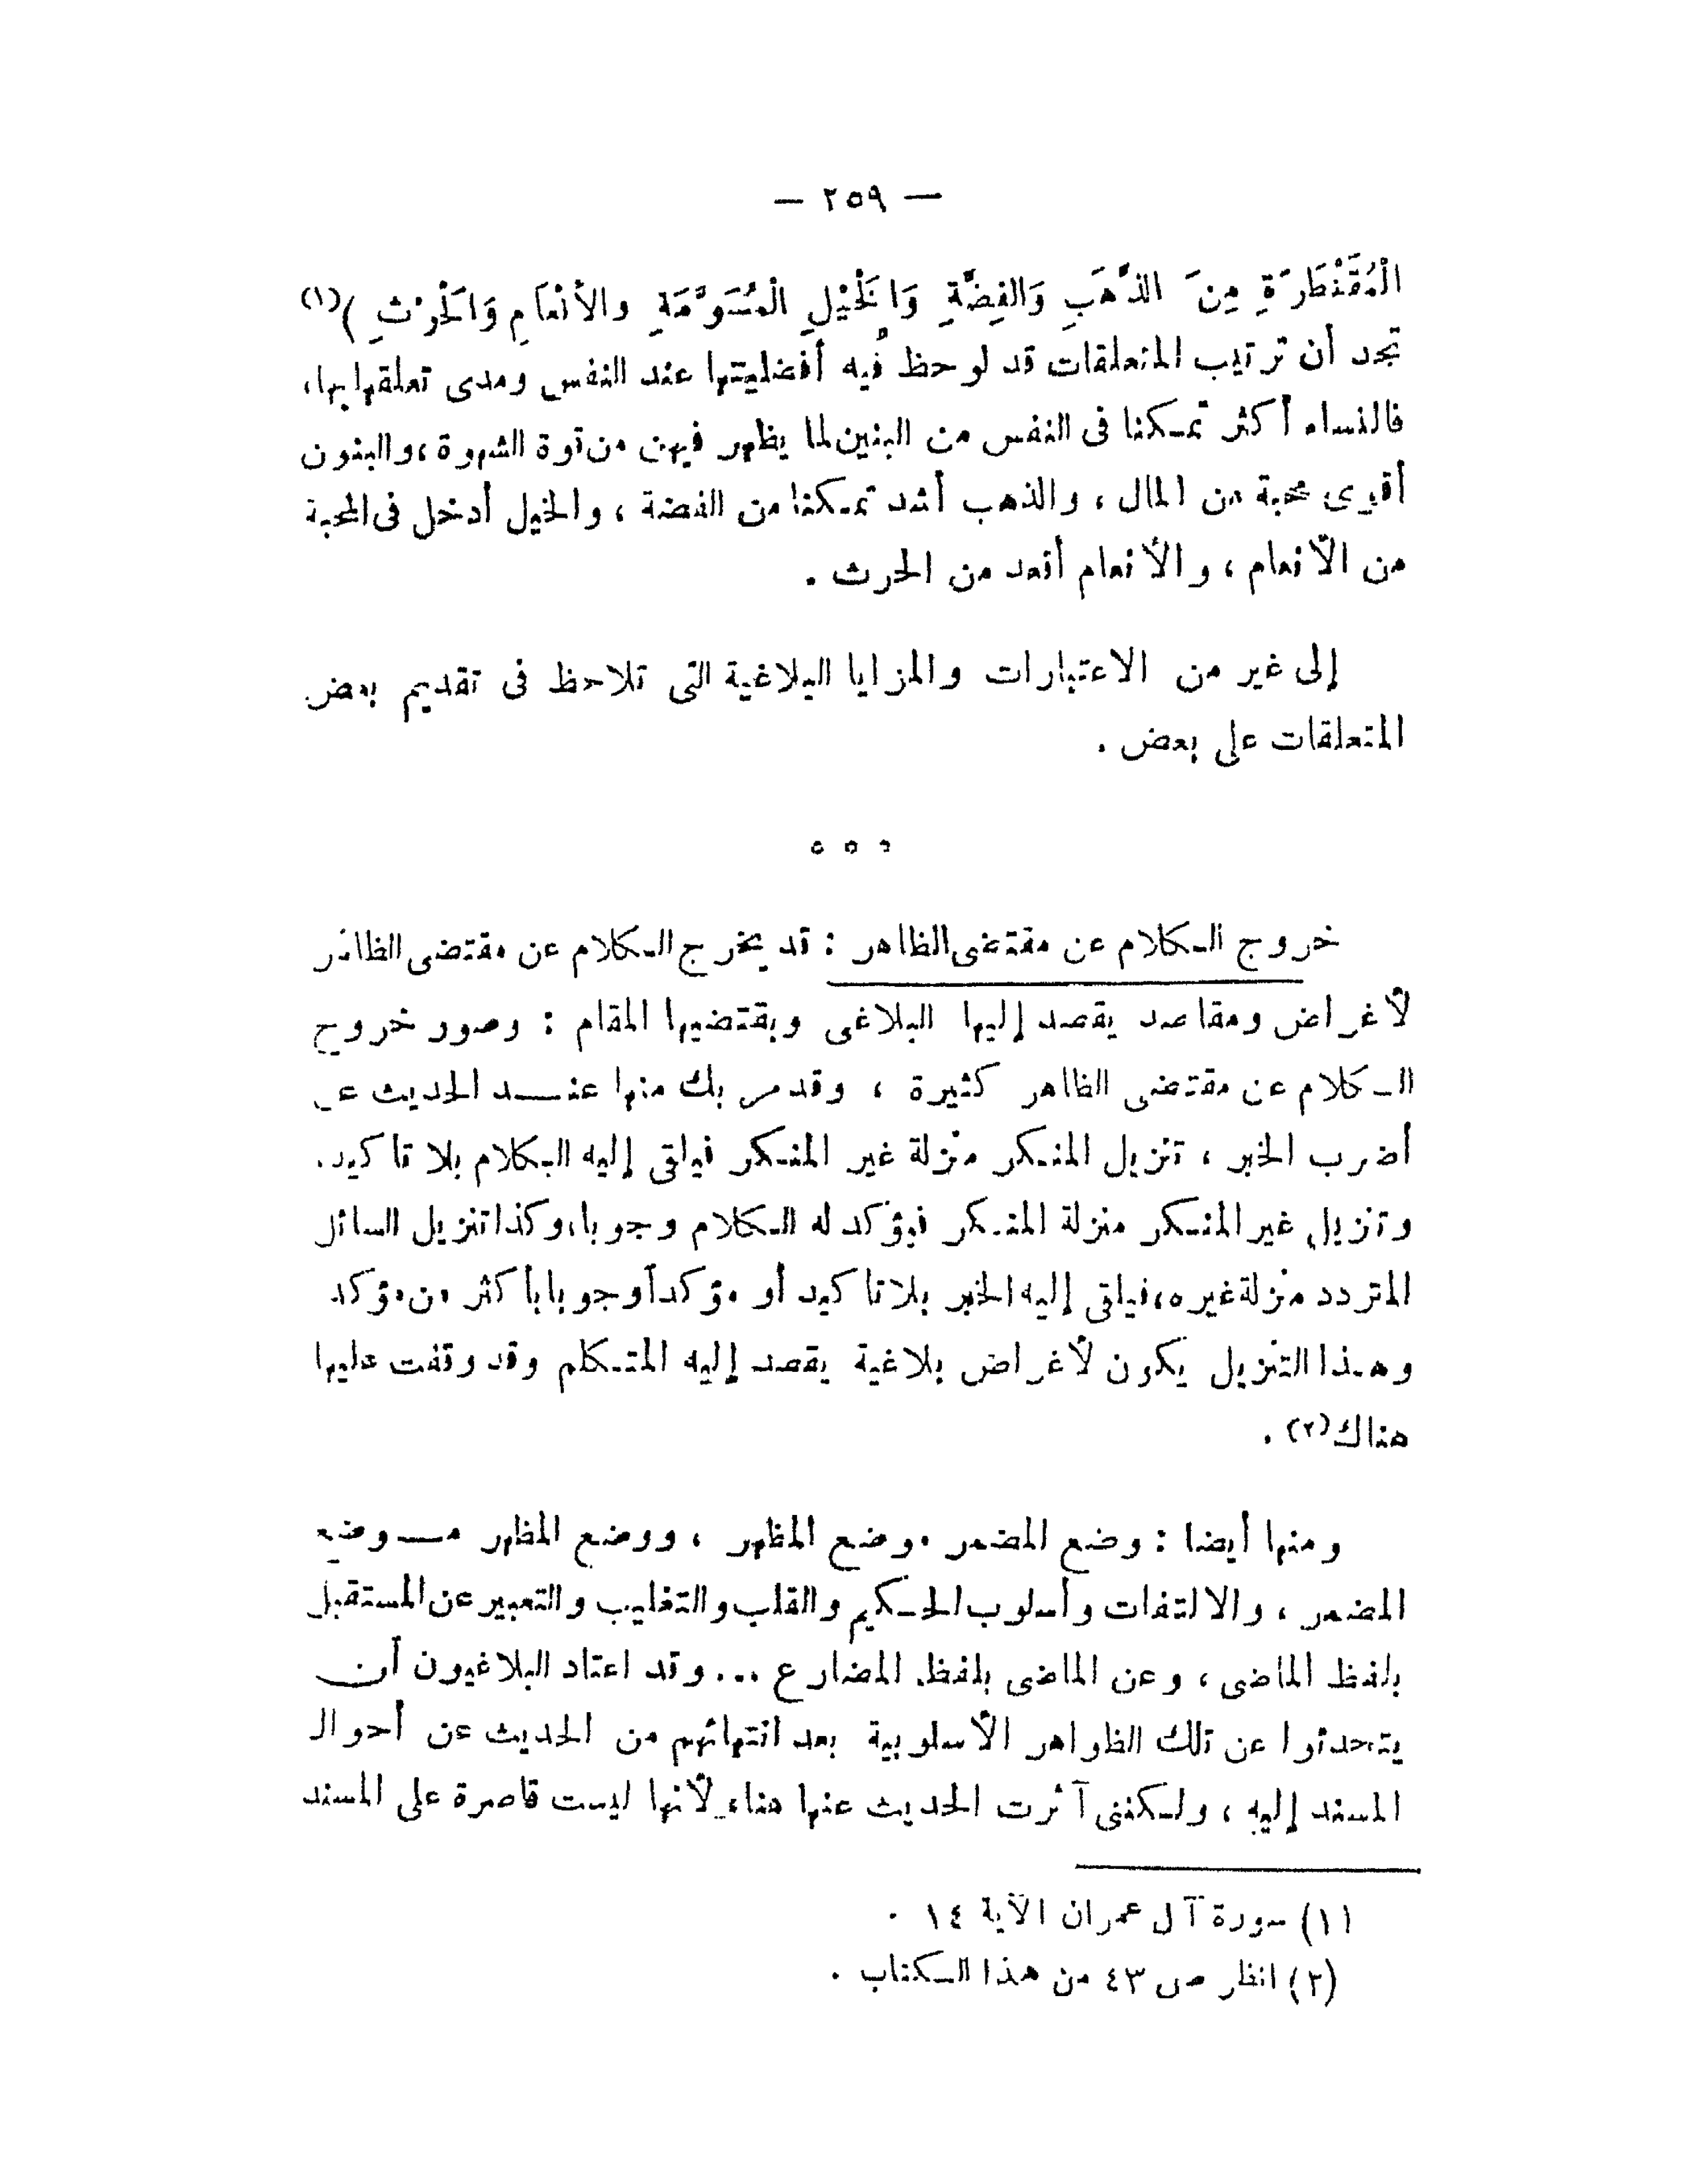 — ٢٥٩ —
الْمُقَنْطَرَةِ مِنَ الذَّهَبِ وَالفِضَّةِ وَالْخَيْلِ الْمُسَوَّمَةِ والأَنْعَامِ وَالْحَرْثِ )(١)
تجد أن ترتيب المتعلقات قد لوحظ فيه أفضليتها عند النفس ومدى تعلقها بها،
فالنساء أكثر تمكنا فى النفس من البنين لما يظهر فيهن من قوة الشهوة ، والبنون
أقوى محبة من المال ، والذهب أشد تمكنا من الفضة ، والخيل أدخل فى المحبة
من الأنعام ، والأنعام أقعد من الحرث .
إلى غير من الاعتبارات والمزايا البلاغية التى تلاحظ فى تقديم بعض
المتعلقات على بعض .
ه ه ه
خروج الكلام عن مقتضى الظاهر : قد يخرج الكلام عن مقتضى الظاهر
لأغراض ومقاصد يقصد إليها البلاغى ويقتضيها المقام : وصور خروج
الكلام عن مقتضى الظاهر كثيرة ، وقد مر بك منها عند الحديث عن
أضرب الخبر ، تنزيل المنكر منزلة غير المنكر فيلقى إليه الكلام بلا تاكيد.
وتنزيل غير المنكر منزلة المنكر فيؤكد له الكلام وجوبا، وكذا تنزيل السائل
المتردد منزلة غيره، فيلقى إليه الخبر بلا تاكيد أو مؤكداً وجوبا بأكثر من مؤكد
وهذا التنزيل يكون لأغراض بلاغية يقصد إليه المتكلم وقد وقفت عليها
هناك(٢) .
ومنها أيضا : وضع المضمر موضع المظهر ، ووضع المظهر موضع
المضمر ، والالتفات وأسلوب الحكيم والقلب والتغليب والتعبير عن المستقبل
بلفظ الماضى ، وعن الماضى بلفظ المضارع ... وقد اعتاد البلاغيون أن
يتحدثوا عن تلك الظواهر الأسلوبية بعد انتهائهم من الحديث عن أحوال
المسند إليه ، ولكننى آثرت الحديث عنها هنا، لأنها ليست قاصرة على المسند
(١) سورة آل عمران الآية ١٤ .
(٢) انظر ص ٤٣ من هذا الكتاب .